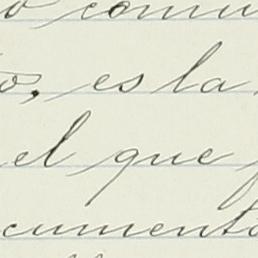 o comu
o, es la
el que
cumento